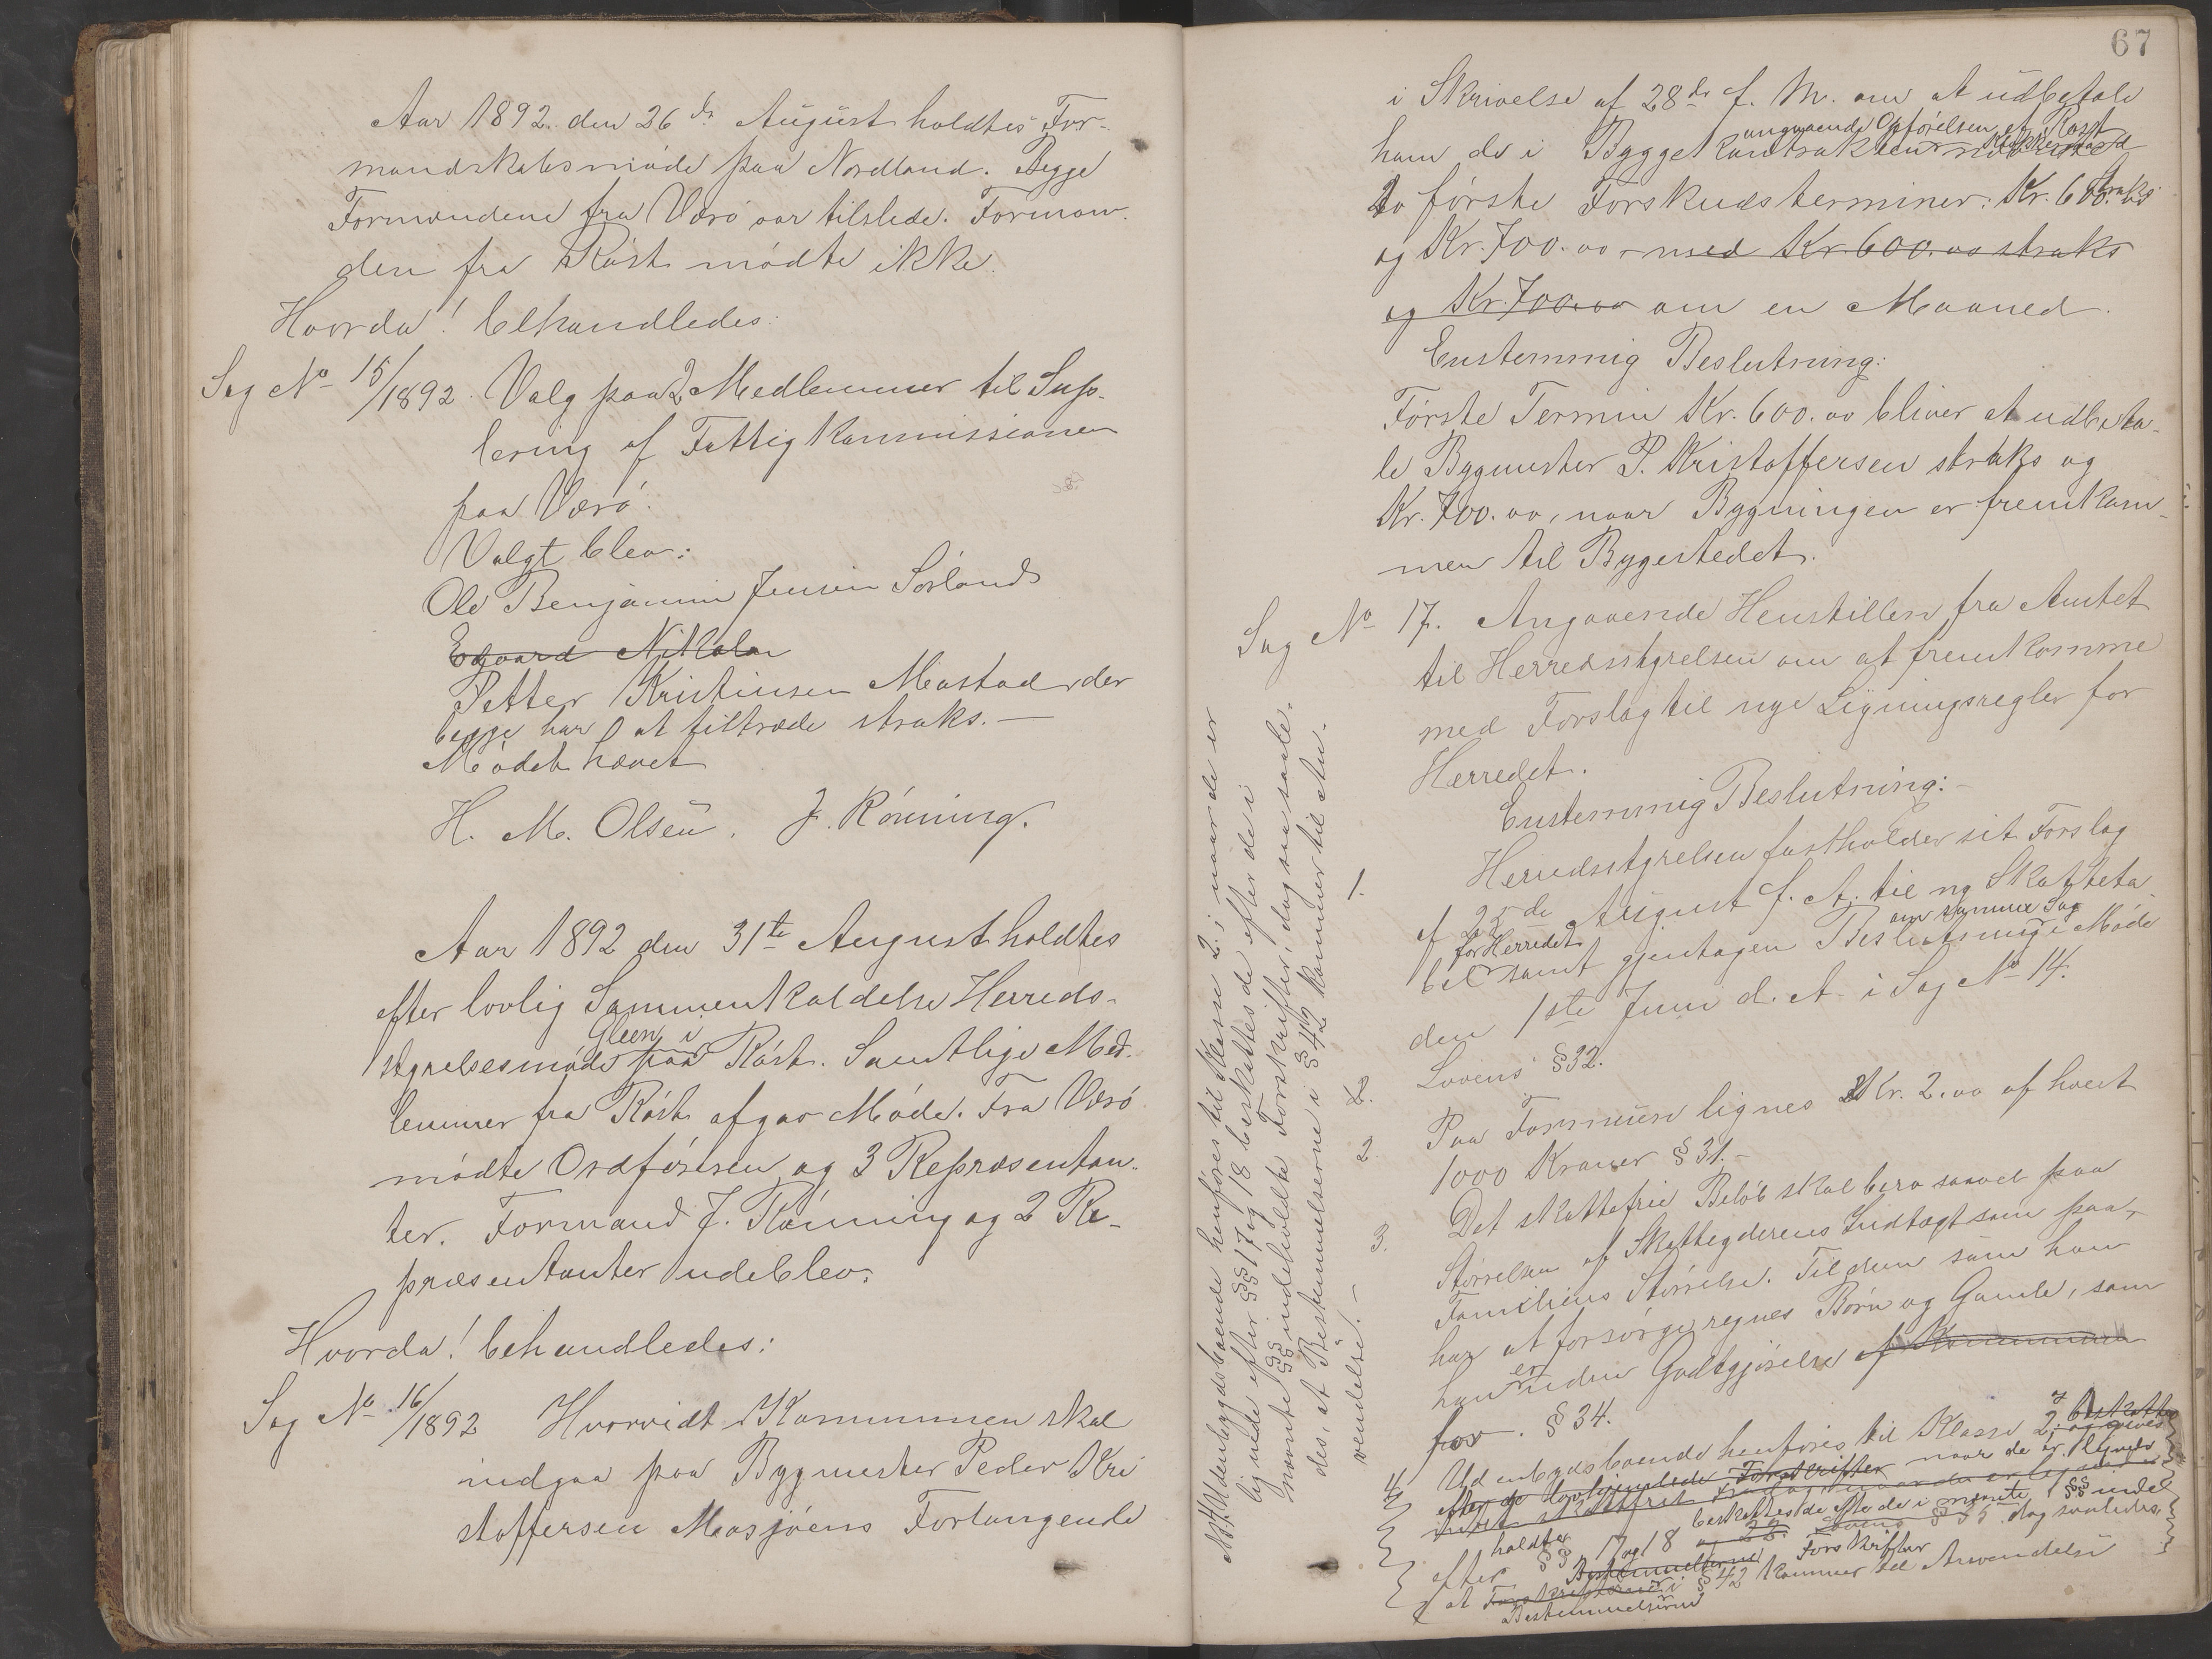 Aar 1892 den 26de August holdtes For-
mandskabsmøde paa Nordland. Begge
Formændene fra Værø var tilstede. Forman-
den fra Røst mødte ikke.
Hvorda! behandledes:
Sag No 15/1892. Valg paa 2 Medlemmer til Sup-
lering af Fattigkommissionen
paa Værø.
Valgt blev:
Ole Benjamin Jensen Sørland
Edvard Nikolai
Petter Kristiansen Mastad, der
begge har at tiltræde straks. —
Mødet hævet
H. M. Olsen. J. Rønning.
Aar 1892 den 31te August holdtes
efter lovlig Sammenkaldelse Herreds-
Gleen i
styrelsesmøde paa Røst. Samtlige Med-
lemmer fra Røst afgav Møde. Fra Værø
mødte Ordføreren og 3 Repræsentan-
ter. Formand J. Rønning og 2 Re-
præsentanter udeblev.
Hvorda! behandledes:
Sag No 16/1892 Hvorvidt Kommunen skal
indgaa paa Bygmester Peder Kri-
stoffersen Mosjøens Forlangende
67
i Skrivelse af 28de f. M. om at udbetale
angaaende Opførelsen af Røst
ham de i Byggekontrakten
to første Forskudsterminer: Kr. 600.00 straks
og Kr. 700.00 med Kr. 600.00 straks
og Kr. 700.00 om en Maaned.
Enstemmig Beslutning:
Første Termin Kr. 600.00 bliver at udbeta-
le Bygmester P. Kristoffersen straks og
Kr. 700.00, naar Bygningen er fremkom-
men til Bygestedet.
Sag No 17. Angaaende Henstillen fra Amtet
til Herredsstyrelsen om at fremkomme
med Forslag til nye Ligningsregler for
Herredet.
Enstemmig Beslutning:
1. Herredsstyrelsen fastholder sit Forslag
af 25de August f. A. til ny Skatteta-
for Herredet om samme Sag
bel samt gjentagen Beslutning i Møde
den 1ste Juni d. A. i Sag No 14.
Lovens §32.
2. Paa Formuen lignes Kr. 2.00 af hvert
1000 Kroner §31.
3. Det skattefrie Beløb skal bero saavel paa
Størrelsen af Skatteyderens Indtægt som paa
Familiens Størrelse. Til dem som han
har at forsørge, regnes Børn og Gamle, som
er
han uden Godtgjørelse af Kommunen
for. §34.
4. Udenbygdsboende henføres til Klasse 2,
efter de Forskrifter naar de er ligned
beskattes de efter de i nævnte §§ indel
holdte
efter §§ 17 og 18 Lovens § 35 dog saaledes,
Bestemmelserne Forskrifter
at i §42 kommer til Anvendelse
Bestemmelserne
Udenbygdsboende henføres til Klasse 2; naar de er
lignede efter §§ 17 og 18 beskattes de efter de i
nævnte §§ indeholdte Forskrifter, dog saa saale-
des, at Bestemmelserne i § 42 kommer til An-
vendelse. —